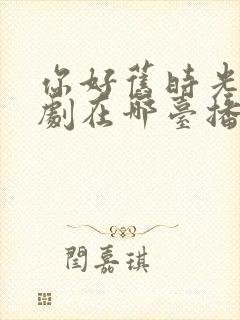 你好舊時光
劇在哪臺播
閆嘉琪